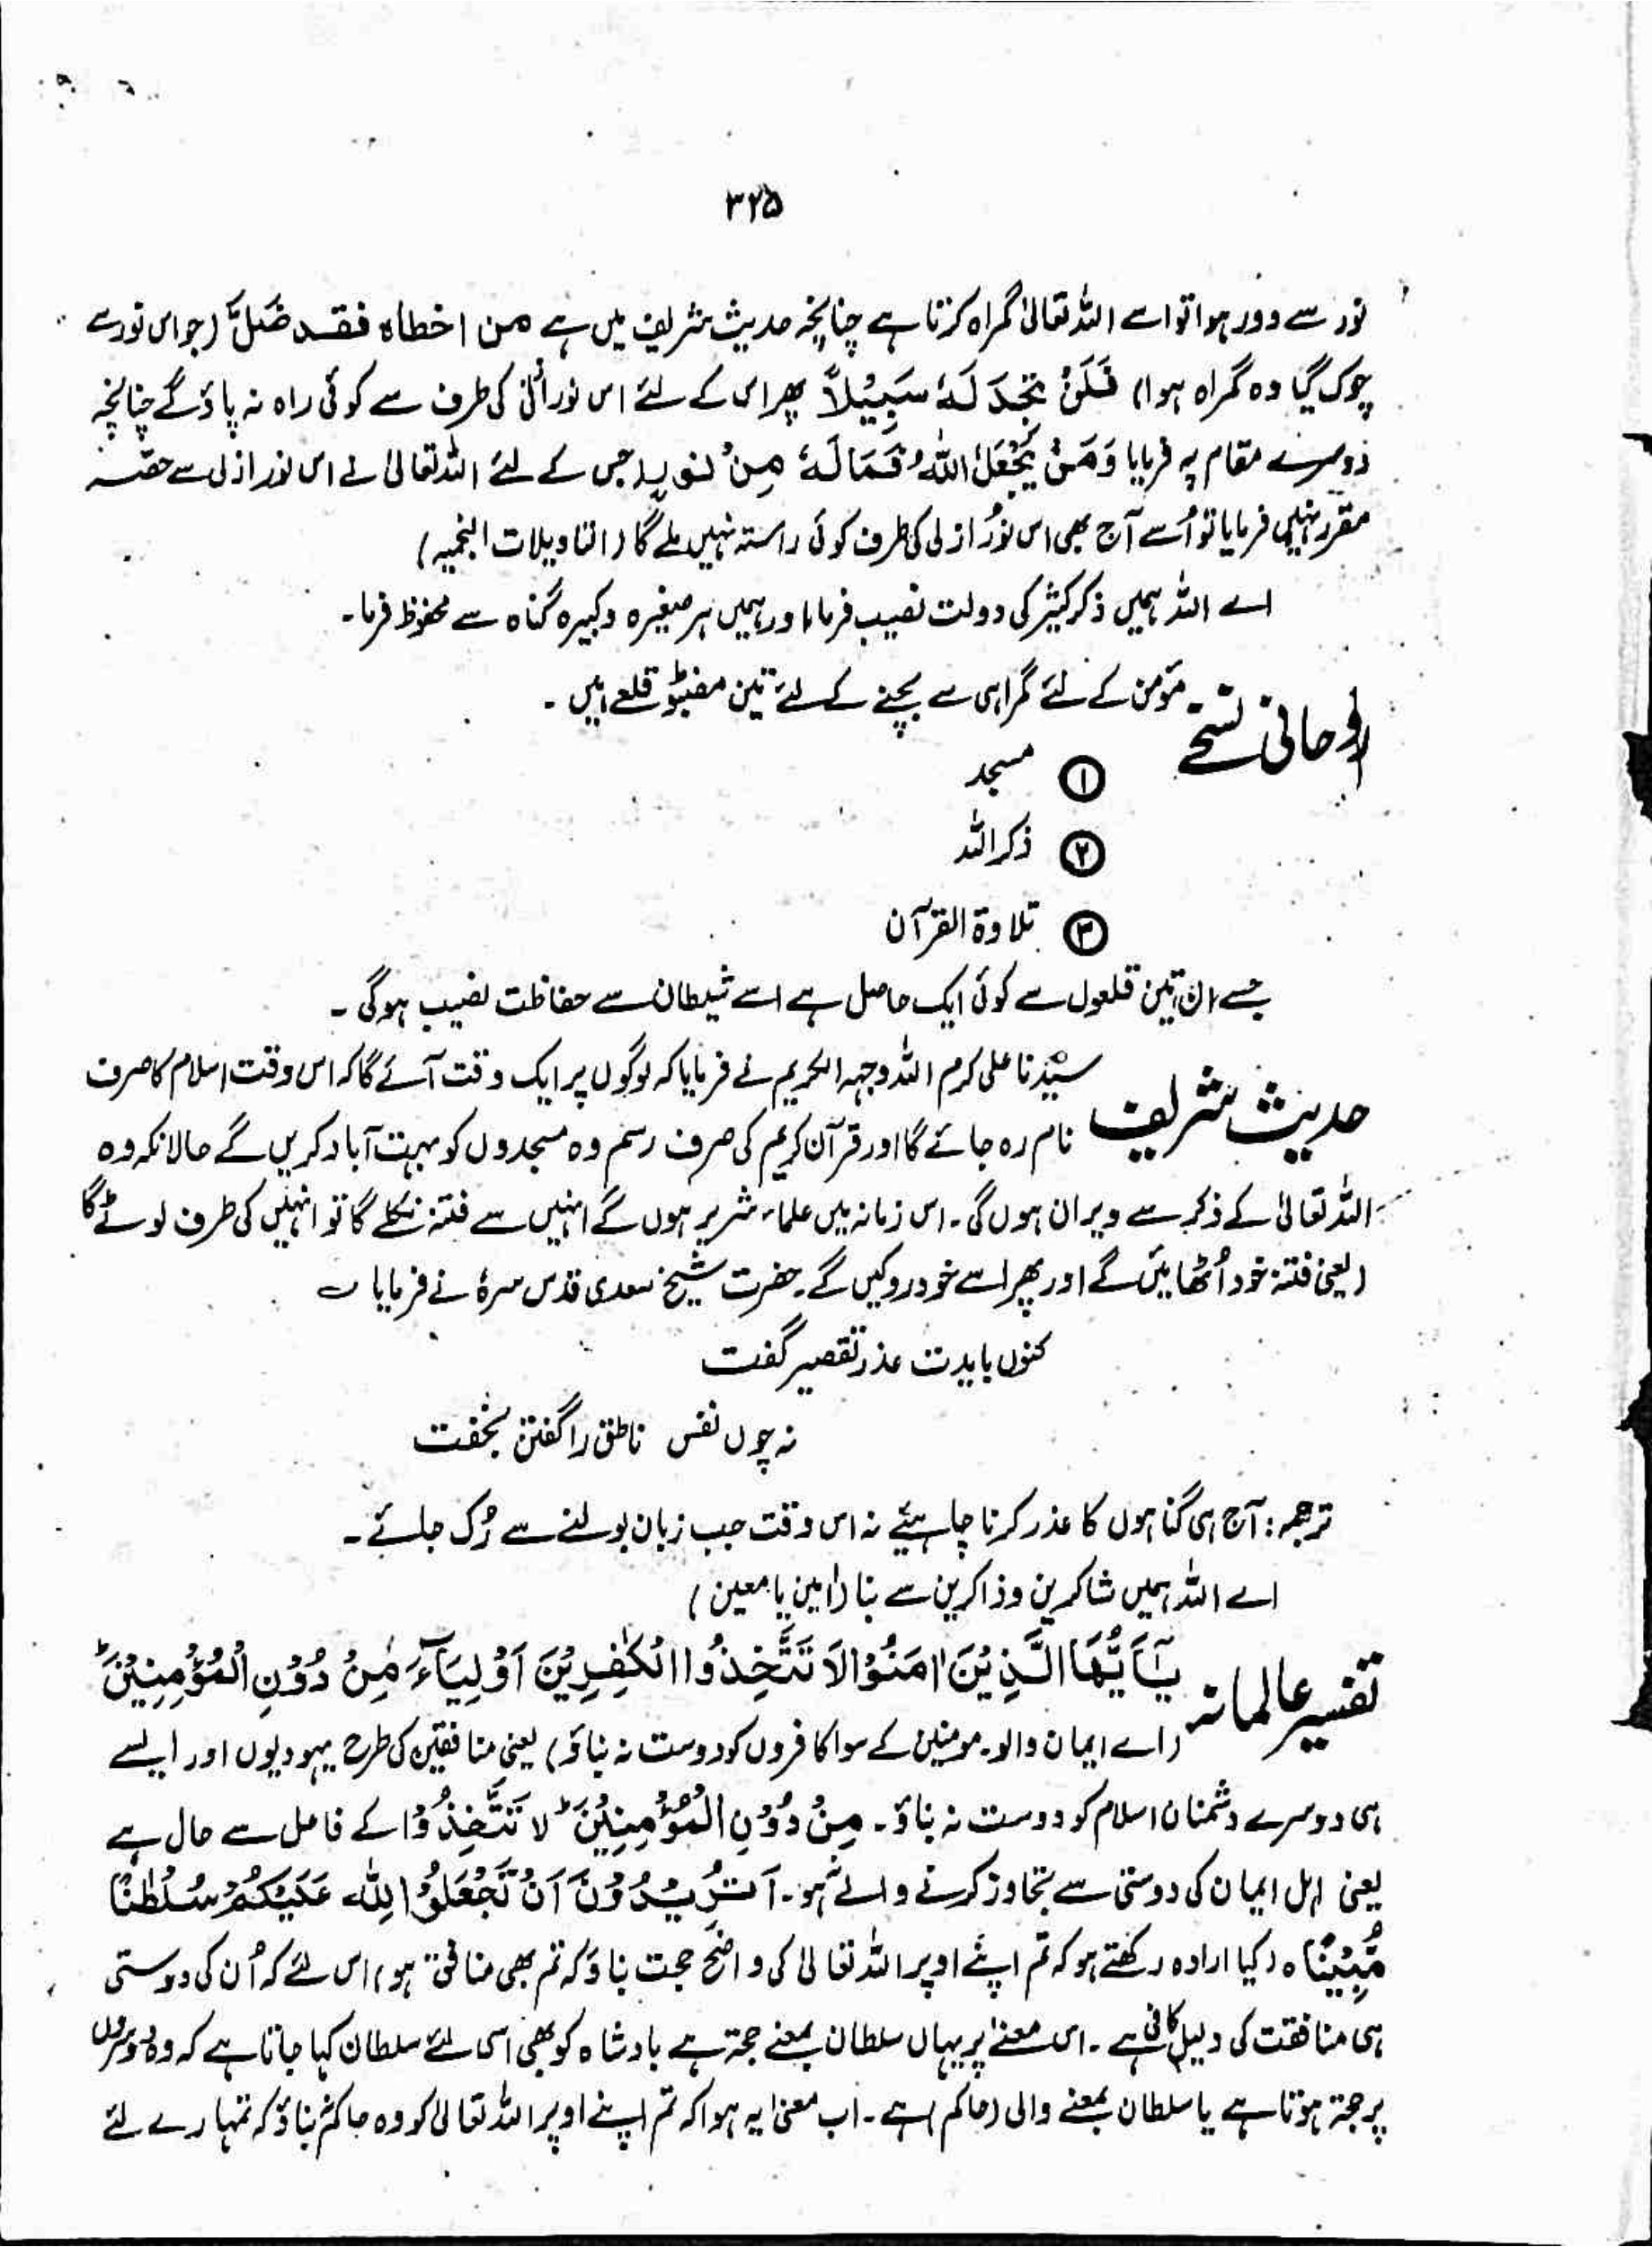 ۳۲۵
نور سے دور ہوا تو اسے اللہ تعالیٰ گمراہ کرتا ہے چنانچہ حدیث شریف میں ہے من اخطاہ فقد ضَلَّ (جو اس نور سے
چوک گیا وہ گمراہ ہوا) فَلَنْ تَجِدَ لَهٗ سَبِيْلًا پھر اس کے لئے اس نور کی طرف سے کوئی راہ نہ پاؤ گے چنانچہ
دوسرے مقام پہ فرمایا وَمَنْ يَجْعَلْ اللّٰهُ فَمَالَهٗ مِنْ نور جس کے لئے اللہ تعالیٰ نے اس نور ازلی سے حصہ
مقرر نہیں فرمایا تو اُسے آج بھی اس نورُ ازلی کی طرف کوئی راستہ نہیں ملے گا (التاویلات النجمیہ)
اے اللہ ہمیں ذکر کثیر کی دولت نصیب فرما اور ہمیں ہر صغیرہ وکبیرہ گناہ سے محفوظ فرما۔
روحانی نسخے مؤمن کے لئے گمراہی سے بچنے کے لئے تین مضبوط قلعے ہیں ۔
① مسجد
② ذکر اللہ
③ تلاوۃ القرآن
جسے ان تین قلعوں سے کوئی ایک حاصل ہے اسے شیطان سے حفاظت نصیب ہوگی ۔
حدیث شریف سیّدنا علی کرم اللہ وجہہ الکریم نے فرمایا کہ لوگوں پر ایک وقت آئے گا کہ اس وقت اسلام کا صرف
نام رہ جائے گا اور قرآن کریم کی صرف رسم وہ مسجدوں کو بہت آباد کریں گے حالانکہ وہ
اللہ تعالیٰ کے ذکر سے ویران ہوں گی۔ اس زمانہ میں علماء شریر ہوں گے انہیں سے فتنہ نکلے گا تو انہیں کی طرف لوٹے گا
(یعنی فتنہ خود اُٹھائیں گے اور پھر اسے خود روکیں گے۔ حضرت شیخ سعدی قدس سرہٗ نے فرمایا ؎
کنوں بایدت عذر تقصیر گفت
نہ چوں نفس ناطق را گفتن بخفت
ترجمہ: آج ہی گناہوں کا عذر کرنا چاہیئے نہ اس وقت جب زبان بولنے سے رُک جائے۔
اے اللہ ہمیں شاکرین و ذاکرین سے بنا (آمین یا معین)
تفسیر عالمانہ يٰٓاَيُّهَا الَّذِيْنَ اٰمَنُوْا لَا تَتَّخِذُوا الْكٰفِرِيْنَ اَوْلِيَآءَ مِنْ دُوْنِ الْمُؤْمِنِيْنَ ؕ
(اے ایمان والو۔ مومنین کے سوا کافروں کو دوست نہ بناؤ) یعنی منافقین کی طرح یہودیوں اور ایسے
ہی دوسرے دشمنان اسلام کو دوست نہ بناؤ ۔ مِنْ دُوْنِ الْمُؤْمِنِيْنَ ؕ لَا تَتَّخِذُوْا کے فاعل سے حال ہے
یعنی اہل ایمان کی دوستی سے تجاوز کرنے والے ہو۔ اَتُرِيْدُوْنَ اَنْ تَجْعَلُوْا لِلّٰهِ عَلَيْكُمْ سُلْطٰنًا
مُّبِيْنًا ہ (کیا ارادہ رکھتے ہو کہ تم اپنے اوپر اللہ تعالیٰ کی واضح حجت بناؤ کہ تم بھی منافق ہو) اس لئے کہ اُن کی دوستی
ہی منافقت کی دلیل کافی ہے ۔ اس معنے پر یہاں سلطان بمعنے حجۃ ہے بادشاہ کو بھی اسی لئے سلطان کہا جاتا ہے کہ وہ دوسروں
پر حجۃ ہوتا ہے یا سلطان بمعنے والی (حاکم) ہے ۔ اب معنیٰ یہ ہوا کہ تم اپنے اوپر اللہ تعالیٰ کو وہ حاکم بناؤ کہ تمہارے لئے